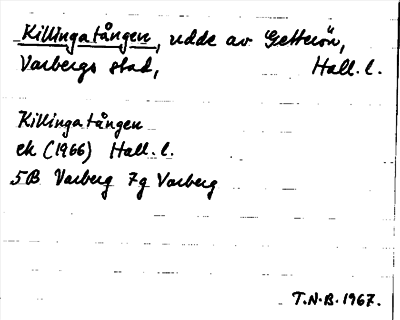 Killingatången, udde av Getterön,
Varbergs stad, Hall. l.
Killingatången
ek (1966) Hall. l.
5B Varberg 7g Varberg
T.N.B. 1967.